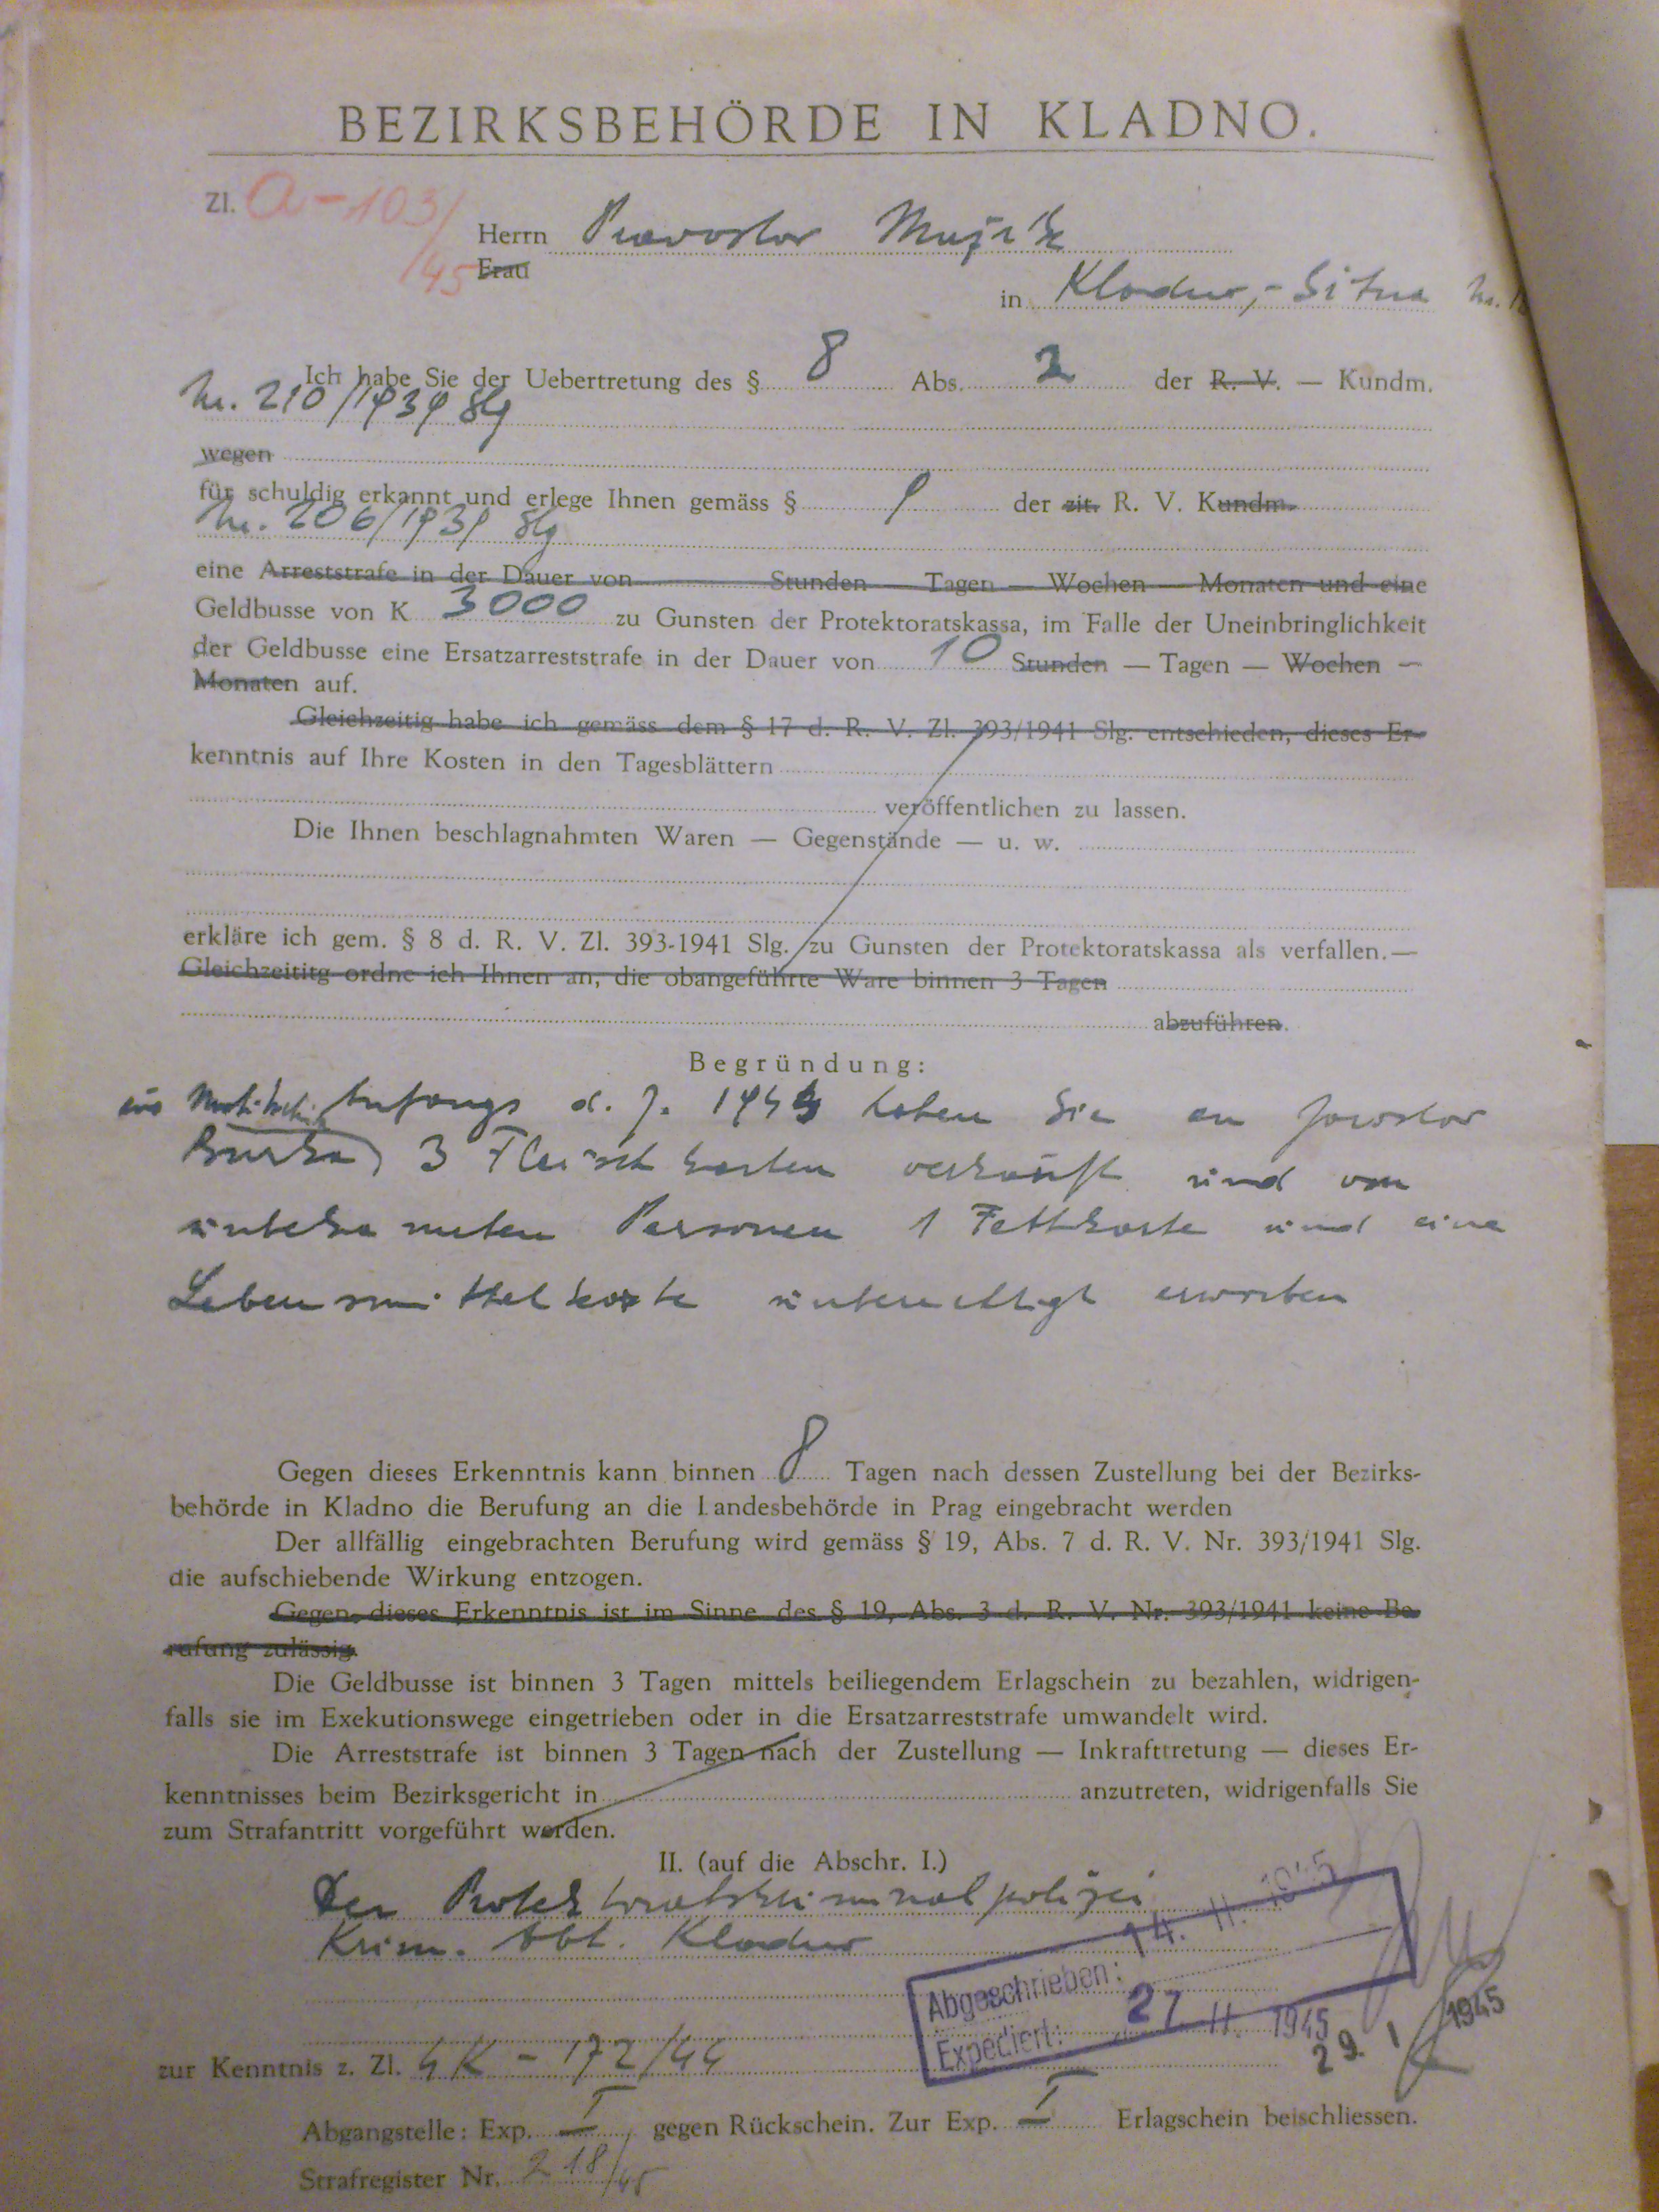 BEZIRKSBEHÖRDE IN KLADNO.
Zl. a-103/
/45
Herrn Pravoslav Mužík
Frau
in Kladno,- Sitna Nr.
Ich habe Sie der Uebertretung des § 8 Abs. 2 der R. V. — Kundm.
Nr. 210/1939 Slg
wegen
für schuldig erkannt und erlege Ihnen gemäss § 1 der zit. R. V. Kundm.
Nr. 206/1939 Slg
eine Arreststrafe in der Dauer von Stunden — Tagen — Wochen — Monaten und eine
Geldbusse von K 3000 zu Gunsten der Protektoratskassa, im Falle der Uneinbringlichkeit
der Geldbusse eine Ersatzarreststrafe in der Dauer von 10 Stunden — Tagen — Wochen —
Monaten auf.
Gleichzeitig habe ich gemäss dem § 17 d. R. V. Zl. 393/1941 Slg. entschieden, dieses Er-
kenntnis auf Ihre Kosten in den Tagesblättern
veröffentlichen zu lassen.
Die Ihnen beschlagnahmten Waren — Gegenstände — u. w.
erkläre ich gem. § 8 d. R. V. Zl. 393-1941 Slg. zu Gunsten der Protektoratskassa als verfallen.—
Gleichzeititg ordne ich Ihnen an, die obangeführte Ware binnen 3 Tagen
abzuführen.
Begründung:
aus Anfangs d. J. 1944 haben Sie an Jaroslav
3 Fleischkarten verkauft und von
unbekannten Personen 1 Fettkarte und eine
Lebensmittelkarte unberechtigt erworben
Gegen dieses Erkenntnis kann binnen 8 Tagen nach dessen Zustellung bei der Bezirks-
behörde in Kladno die Berufung an die Landesbehörde in Prag eingebracht werden
Der allfällig eingebrachten Berufung wird gemäss § 19, Abs. 7 d. R. V. Nr. 393/1941 Slg.
die aufschiebende Wirkung entzogen.
Gegen dieses Erkenntnis ist im Sinne des § 19, Abs. 3 d. R. V. Nr. 393/1941 keine Be-
rufung zulässig.
Die Geldbusse ist binnen 3 Tagen mittels beiliegendem Erlagschein zu bezahlen, widrigen-
falls sie im Exekutionswege eingetrieben oder in die Ersatzarreststrafe umwandelt wird.
Die Arreststrafe ist binnen 3 Tagen nach der Zustellung — Inkrafttretung — dieses Er-
kenntnisses beim Bezirksgericht in anzutreten, widrigenfalls Sie
zum Strafantritt vorgeführt werden.
II. (auf die Abschr. I.)
Der Protektoratskriminalpolizei
Krim. Abt. Kladno
Abgeschrieben: 14. II. 1945
Expediert: 27. II. 1945
29. I 1945
zur Kenntnis z. Zl. 4K - 172/44
Abgangstelle: Exp. I, gegen Rückschein. Zur Exp. I Erlagschein beischliessen.
Strafregister Nr. 218/45